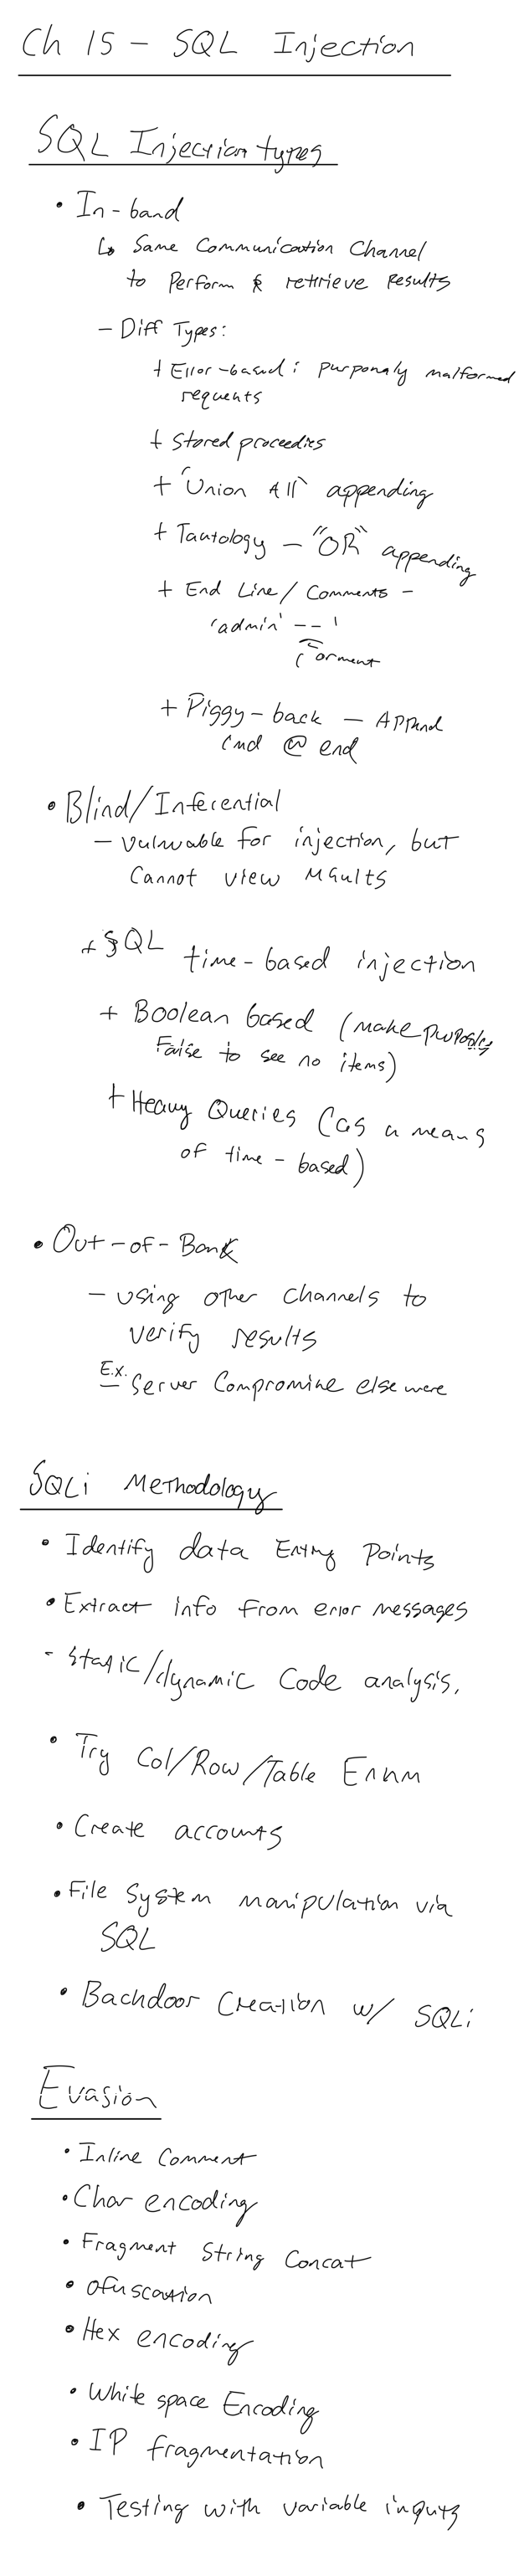 Ch 15 - SQL Injection
SQL Injection types
• In-band
↳ Same Communication Channel
to Perform & retrieve Results
- Diff Types:
+ Error-based: purposely malformed
requests
+ Stored procedies
+ "Union All" appending
+ Tautology - "OR" appending
+ End Line / Comments -
'admin' -- '
+ Piggy-back - Append
cmd @ end
• Blind/Inferential
- Vulnerable for injection, but
Cannot view results
+ SQL time-based injection
+ Boolean based (make purposley
False to see no items)
+ Heavy Queries (as a means
of time-based)
• Out-of-Band
- using other channels to
verify results
Ex. Server Compromise elsewere
SQLi Methodology
• Identify data Entry Points
• Extract info from error messages
- Static/dynamic Code analysis.
• Try Col/Row/Table Enum
• Create accounts
• File System manipulation via
SQL
• Backdoor Creation w/ SQLi
Evasion
• Inline Comment
• Char encoding
• Fragment String Concat
• Ofuscation
• Hex encoding
• White space Encoding
• IP fragmentation
• Testing with variable inputs